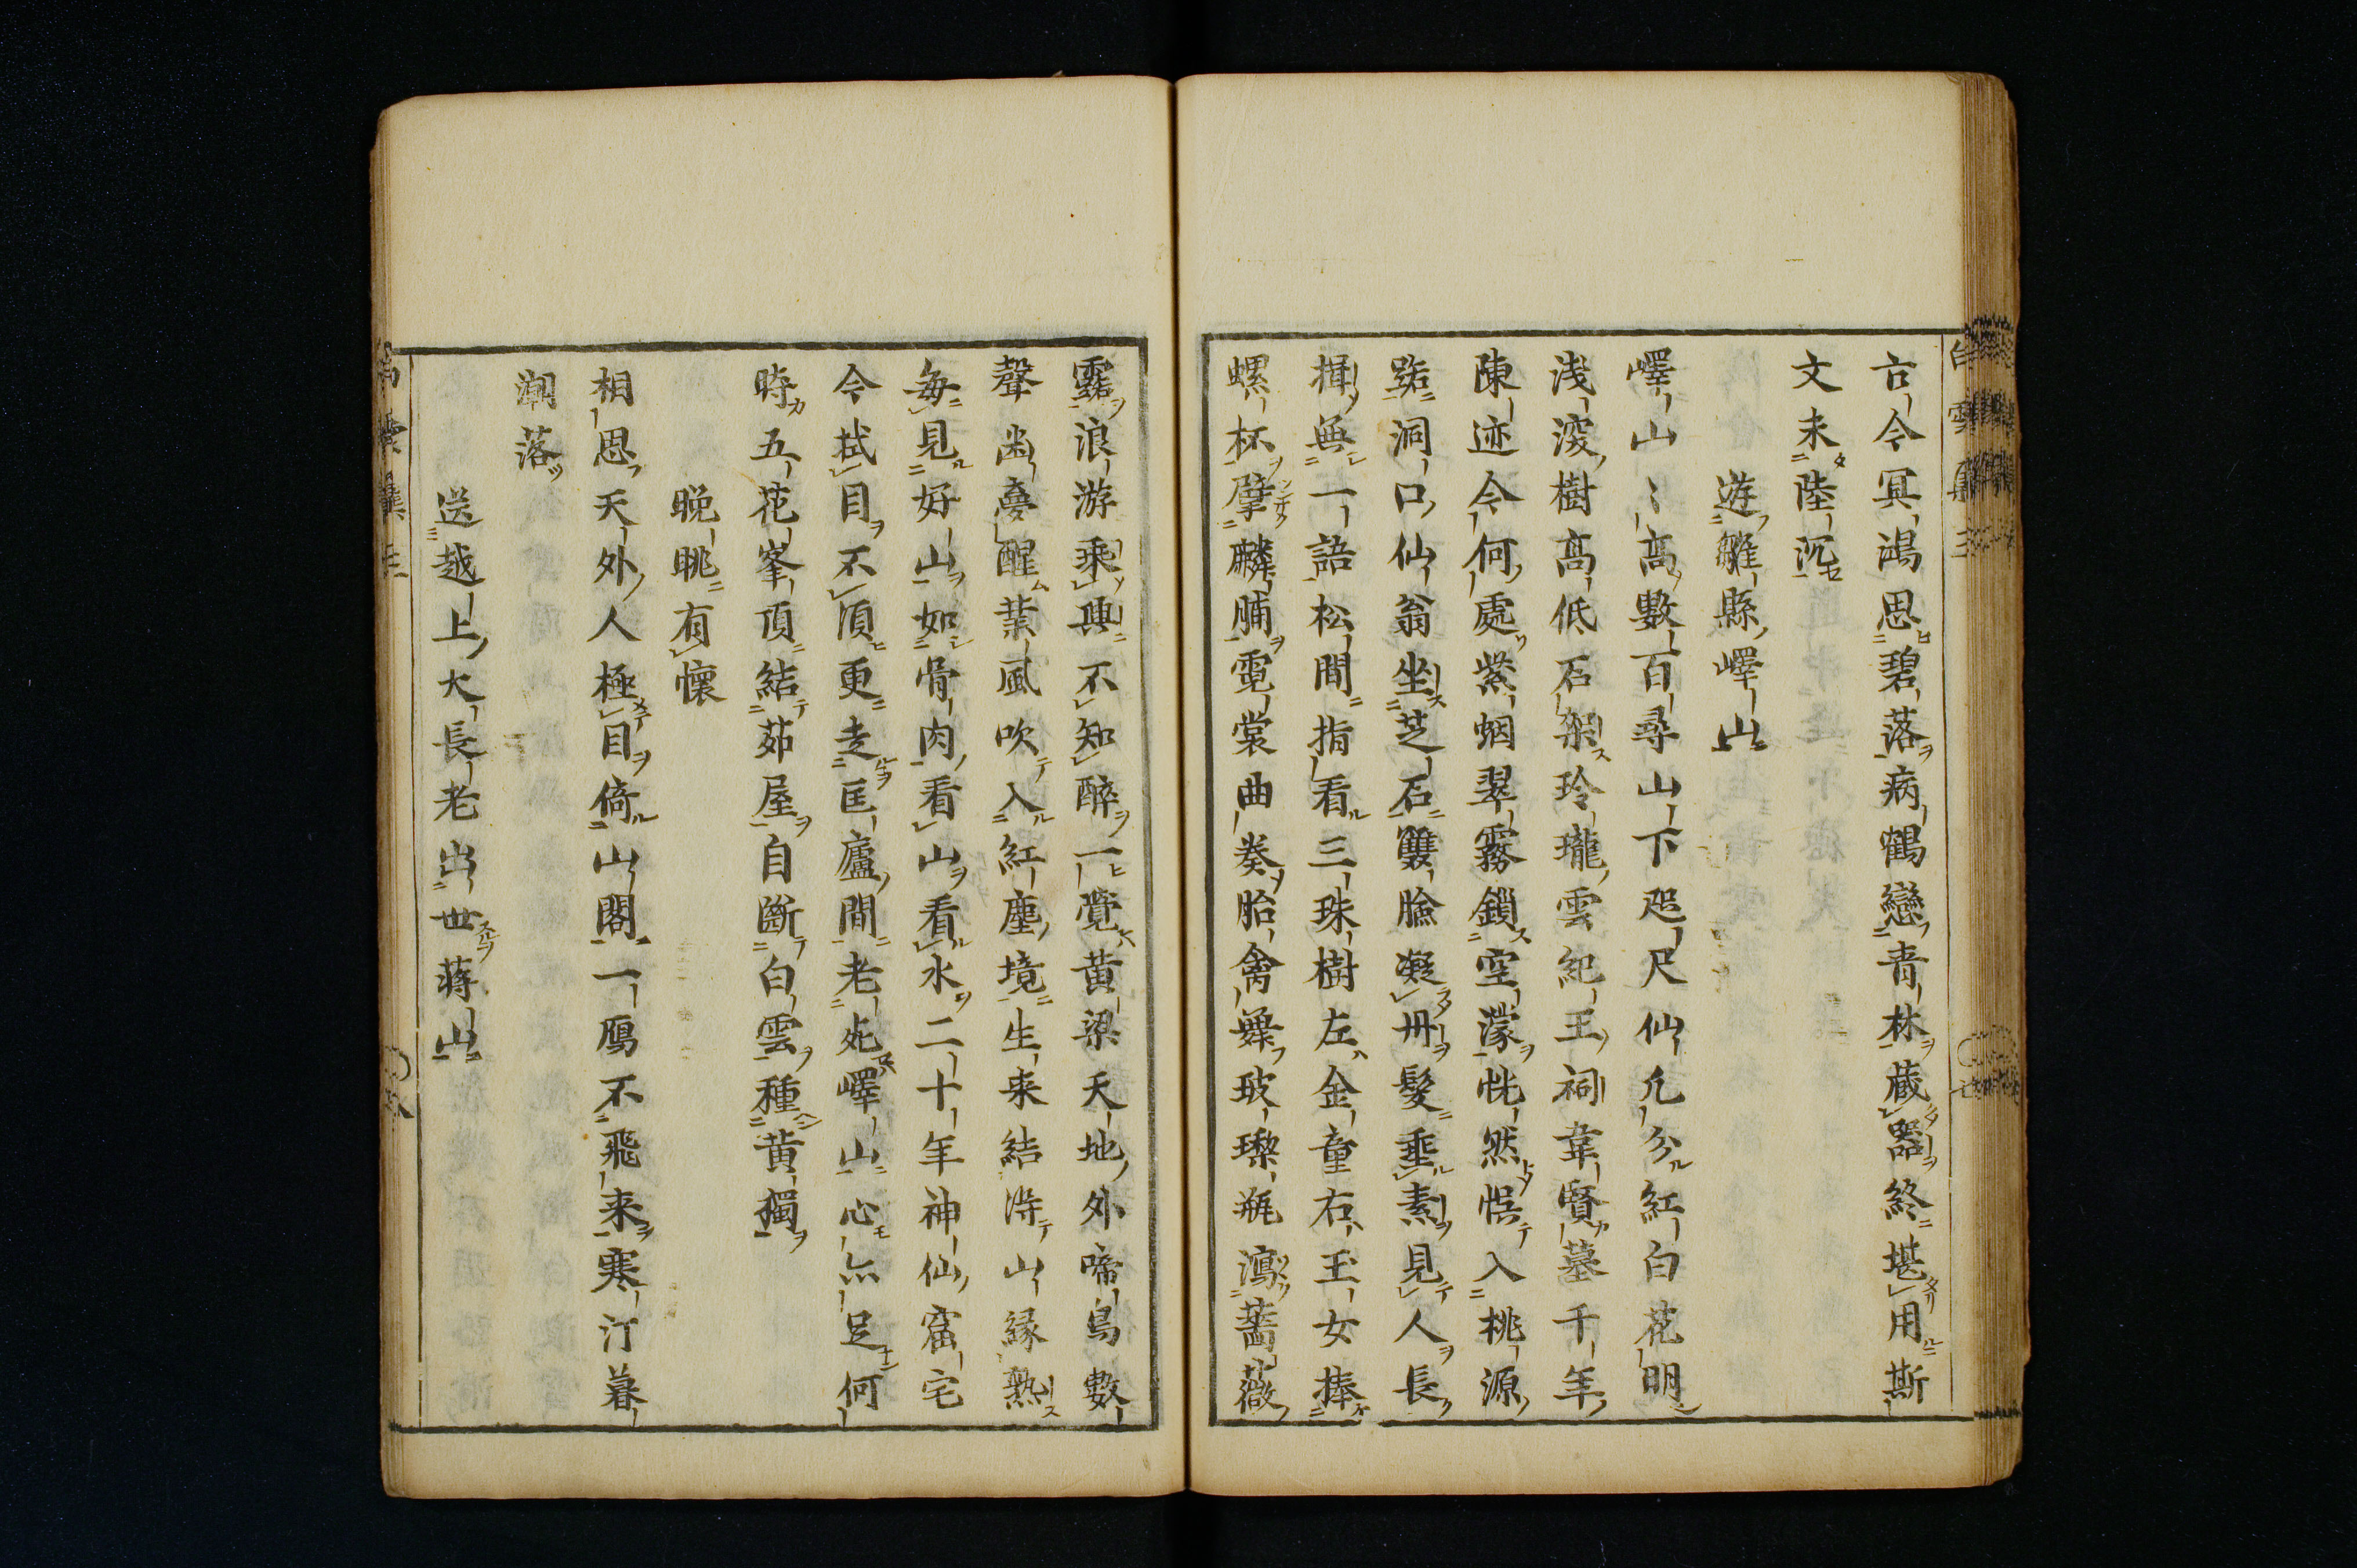 古今冥鴻思碧落病鶴戀青林蔵器終堪用斯
文未陸沉
遊雒縣嶧山
嶧山〻高數百尋山下咫尺仙凢分紅白花明
浅深樹高低石架玲瓏雲紀王祠韋賢墓千年
陳迹今何處紫烟翠霧鎖空濛恍然悮入桃源
路洞口仙翁坐芝石雙臉凝丹髮垂素見人長
揖無一語松間指看三珠樹左金童右玉女捧
螺杯擘麟脯霓裳曲奏胎禽舞玻瓈瓶瀉薔薇
露浪游乘興不知醉一覺黄梁天地外啼鳥數
聲幽夢醒葉風吹入紅塵境生来結得山緣熟
毎見好山如骨肉看山看水二十年神仙窟宅
今拭目不湏更走匡廬間老死嶧山心亦足何
時五花峯頂結茆屋自斷白雲種黄獨
晚眺有懷
相思天外人極目倚山閣一鴈不飛来寒汀暮
潮落
送越上大長老出世蒋山